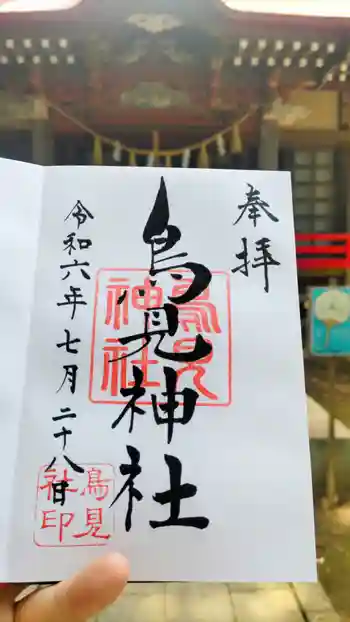 奉拝
鳥見神社
鳥見
神社
令和六年七月二十八日
鳥見
社印